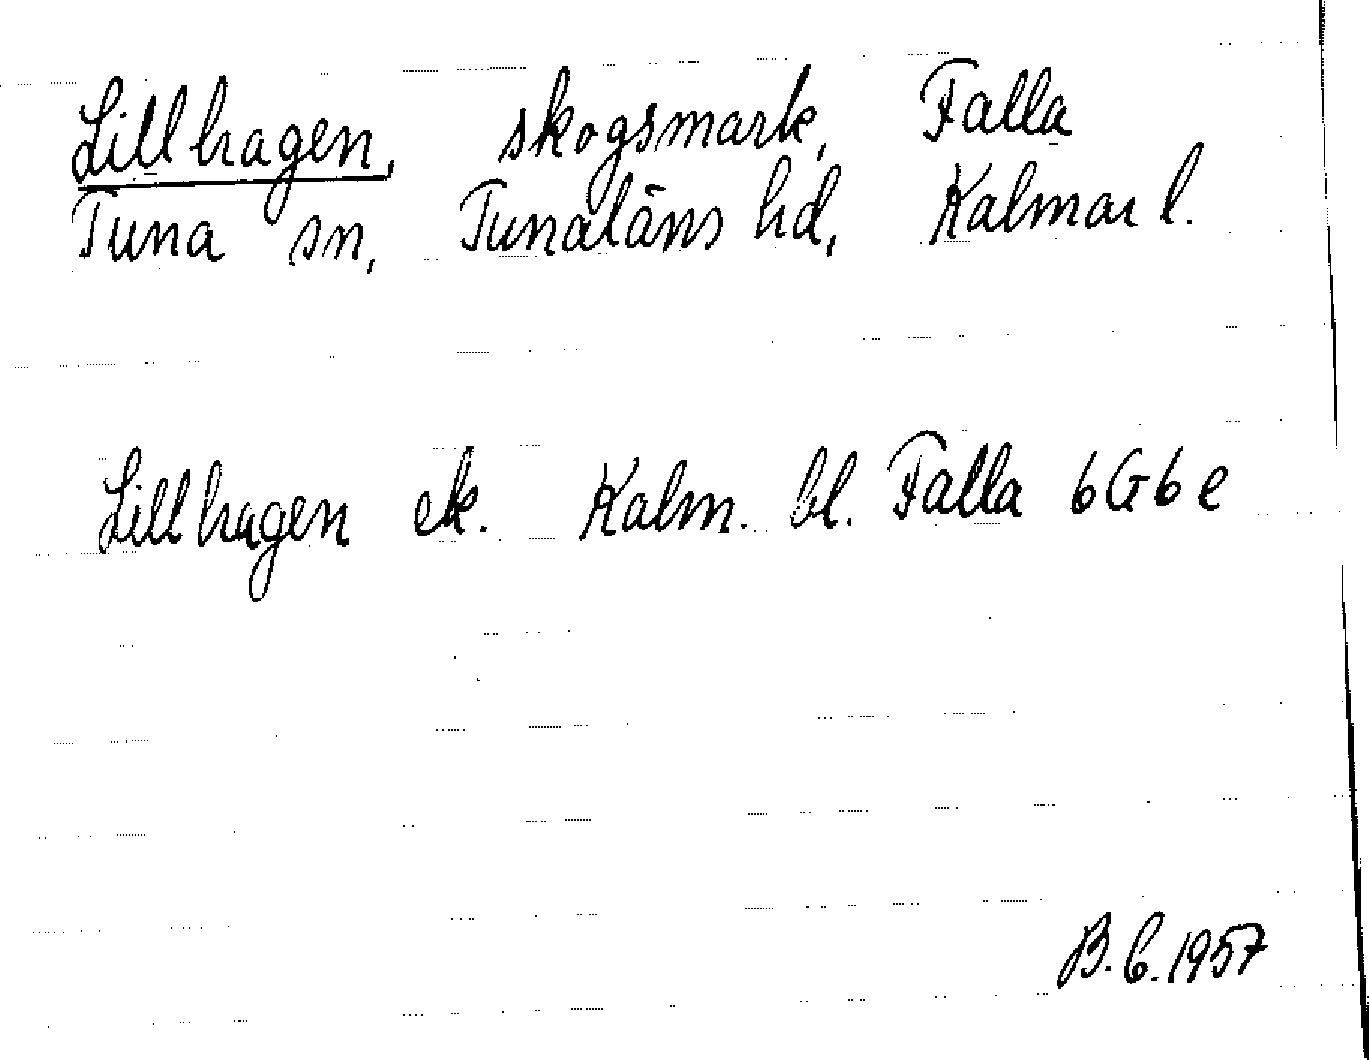 Lillhagen, skogsmark, Falla
Tuna sn, Tunaläns hd, Kalmar l.
Lillhagen ek. Kalm. bl. Falla 6G6e
B.C.1957